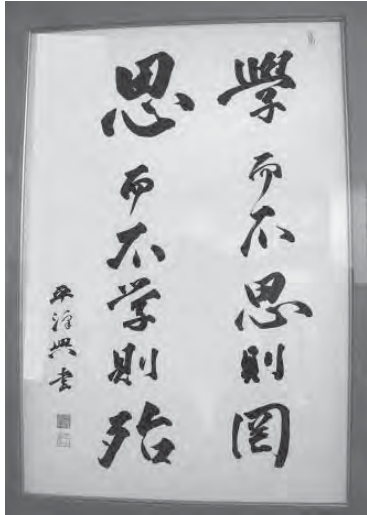 學而不思則罔
思而不学則殆
平澤興書